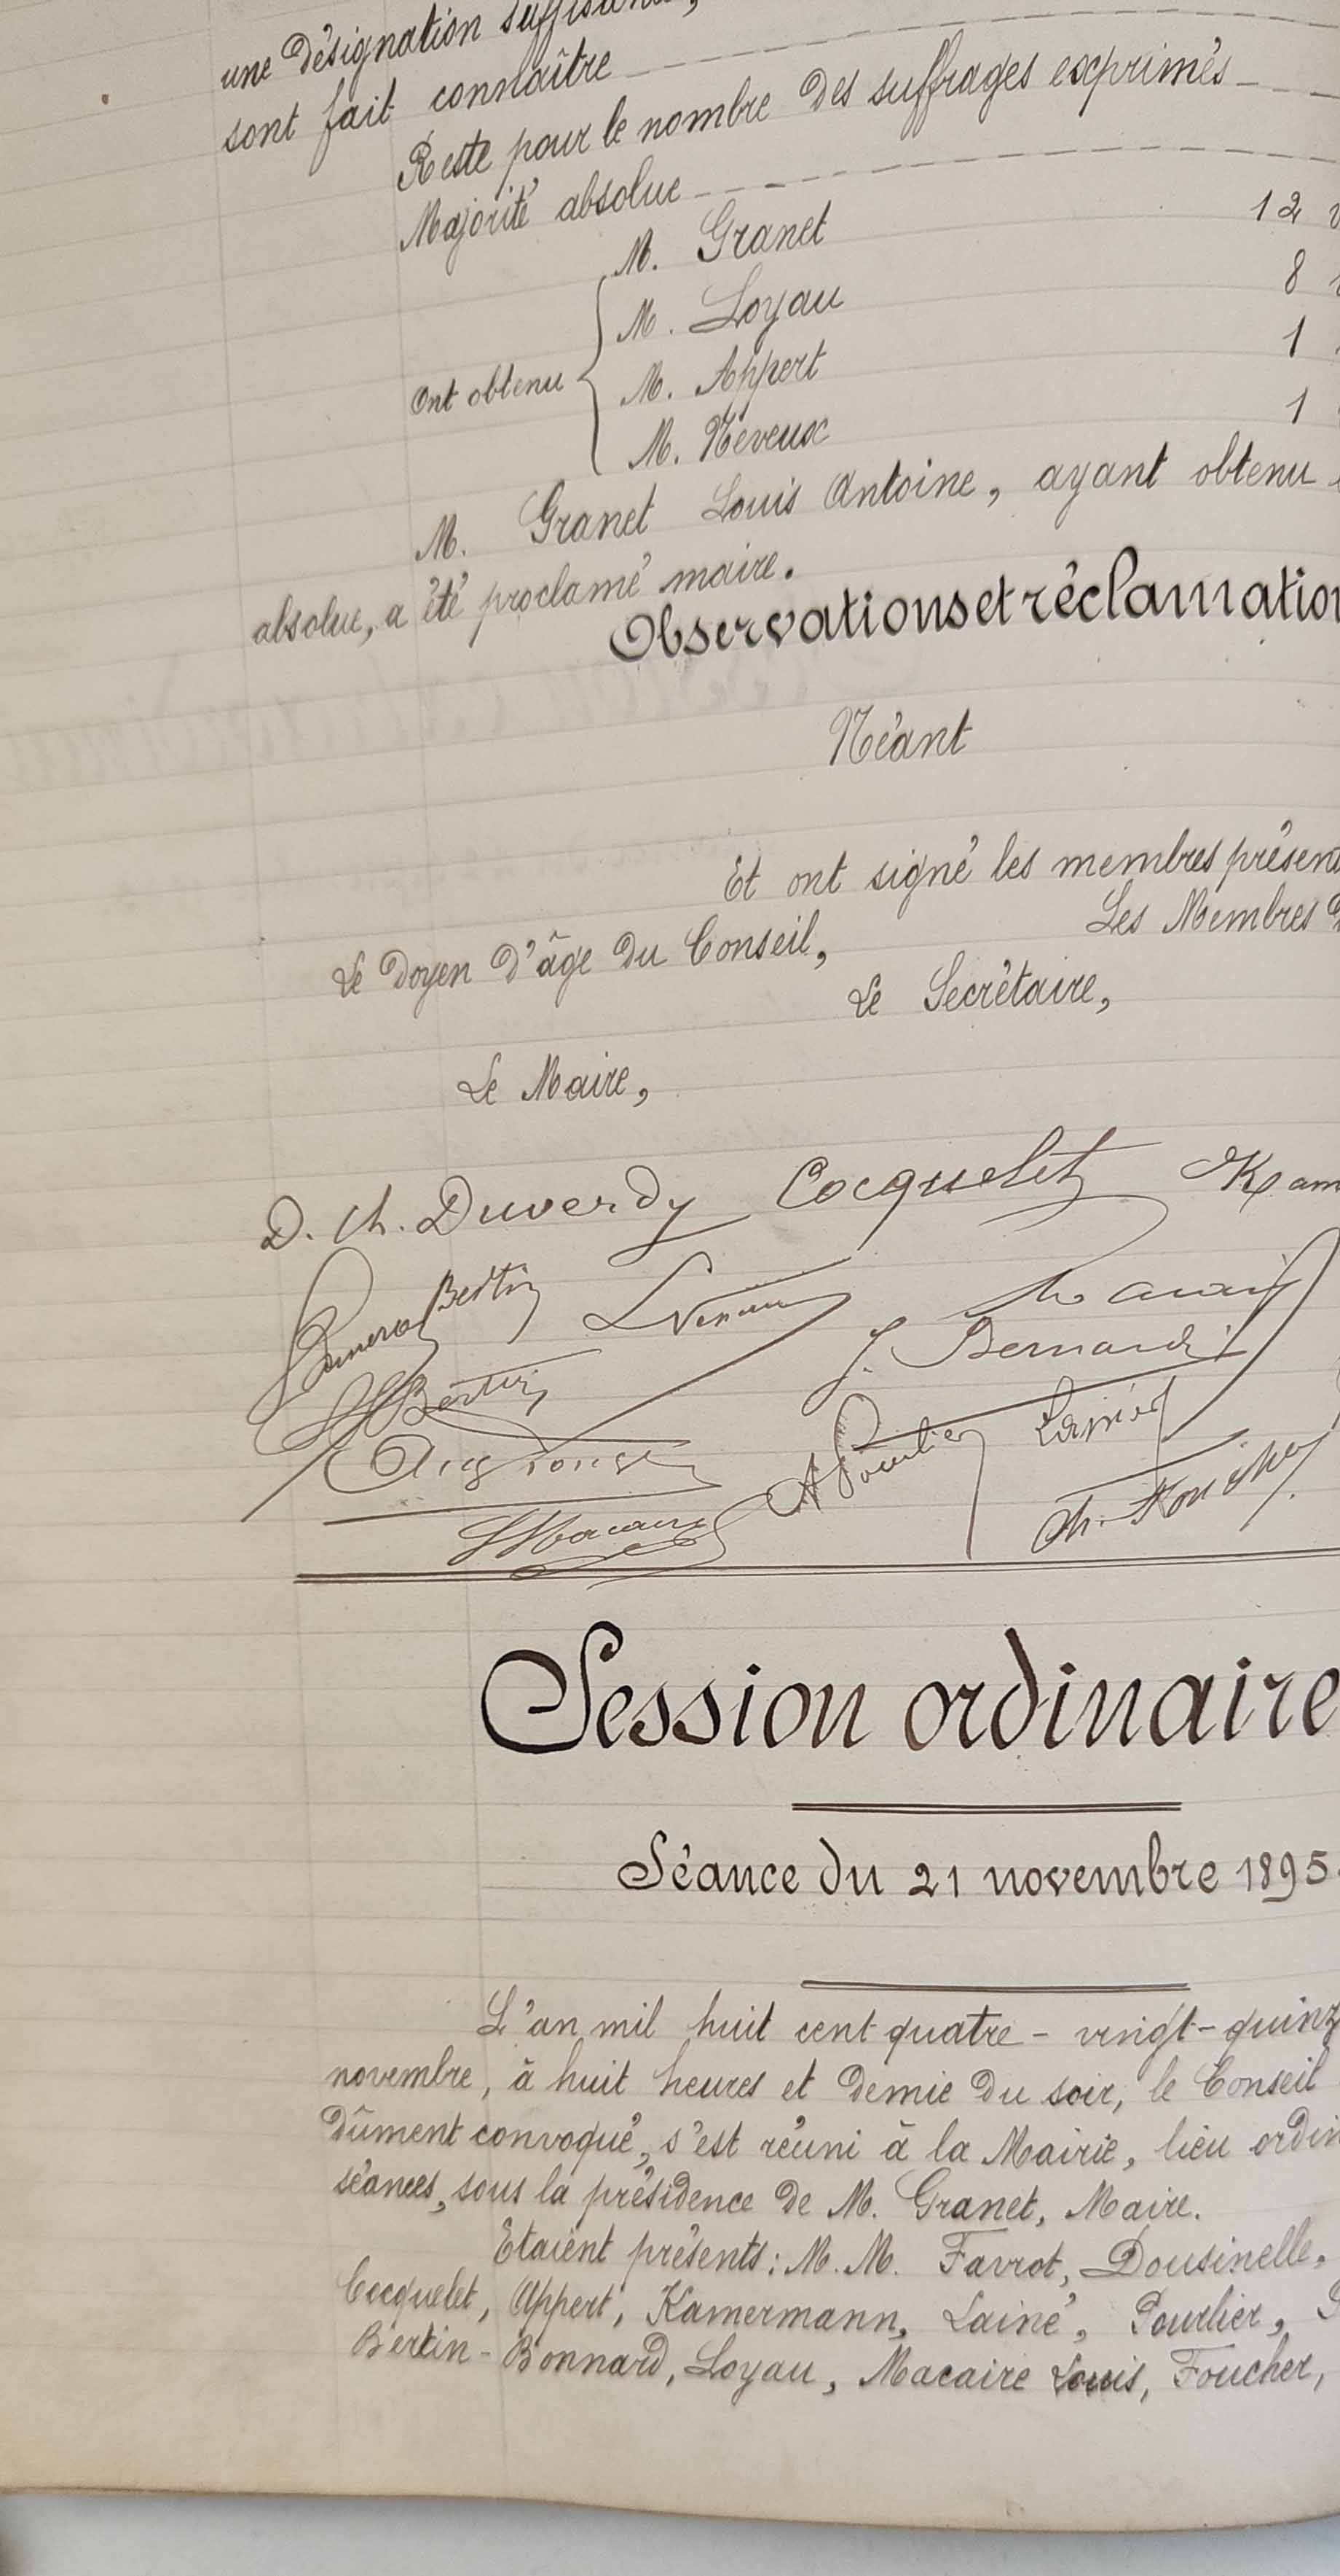 une désignation
sont fait connaître
Reste pour le nombre des suffrages exprimés
Majorité absolue
M. Granet 12
M. Loyau 8
Ont obtenu
M. Appert 1
M. Neveux 1
M. Granet Louis Antoine, ayant obtenu
absolue, a été proclamé maire.
Observations et réclamation
Néant
Et ont signé les membres présen
Les Membres
Le Doyen d'âge du Conseil,
Le Secrétaire,
Le Maire,
D. Ch. Duverdy Cocquelet Kam
Bertin
J. Bernard
Bertin
A Pourlier Lainé
Ch. Foucher
Session ordinaire
Séance du 21 novembre 1895
L'an mil huit cent quatre-vingt-quinz
novembre, à huit heures et demie du soir, le Conseil
dûment convoqué, s'est réuni à la Mairie, lieu ordin
séances, sous la présidence de M. Granet, Maire.
Etaient présents: M.M. Favrot, Dousinelle,
Cocquelet, Appert, Kamermann, Lainé, Pourlier,
Bertin-Bonnard, Loyau, Macaire Louis, Foucher,